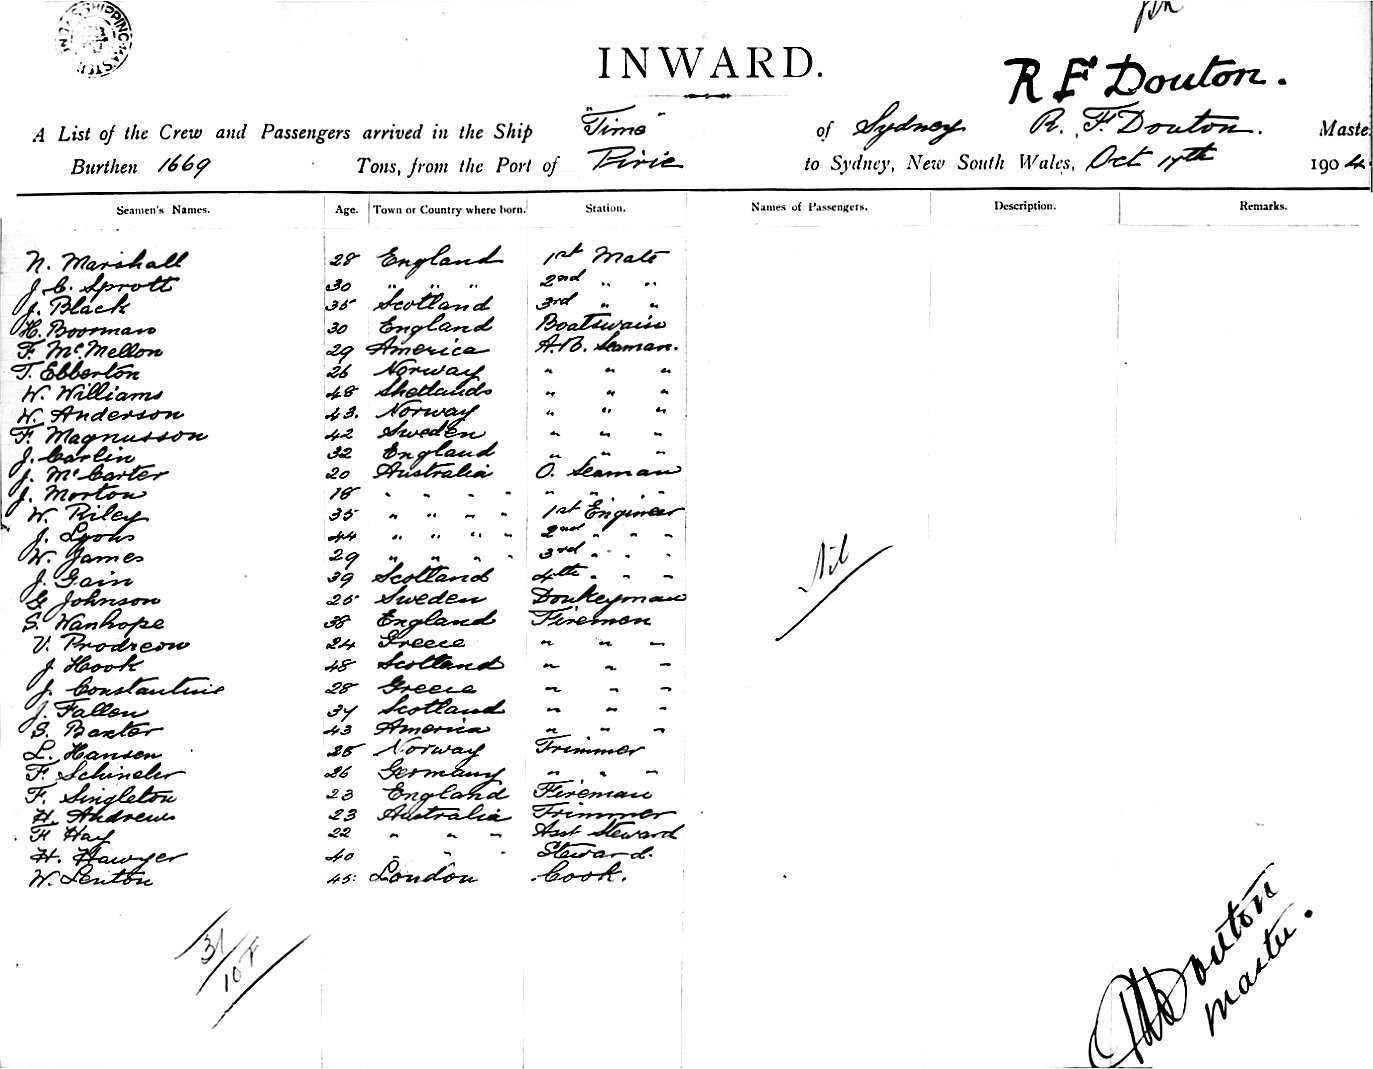 INWARD.
R F Douton.
A List of the Crew and Passengers arrived in the Ship "Time" of Sydney R. F. Douton. Maste
Burthen 1669 Tons, from the Port of Pirie to Sydney, New South Wales, Oct 17th 1904.
Seamen's Names. Age. Town or Country where born. Station. Names of Passengers. Description. Remarks.
N. Marshall 28 England 1st Mate
J. C. Sprott 30 " " " 2nd " "
J. Black 35 Scotland 3rd " "
H. Boorman 30 England Boatswain
F. McMellon 29 America A.B. Seaman.
T. Ebberton 26 Norway " " "
W. Williams 48 Shetlands " " "
W. Anderson 43. Norway " " "
F. Magnusson 42 Sweden " " "
J. Carlin 32 England " " "
J. McCarter 20 Australia O. Seaman
J. Morton 18 " " " " " " " "
W. Riley 35 " " " " 1st Engineer
J. Lyons 44 " " " " 2nd " " "
W. James 29 " " " " 3rd " " "
J. Gain 39 Scotland 4th " " "
G. Johnson 25 Sweden Donkeyman
S. Wanhope 38 England Firemen
V. Prodreon 24 Greece " " "
J Hook 48 Scotland " " "
J. Constantine 28 Greece " " "
J. Fallon 37 Scotland " " "
S. Baxter 43 America " " "
L. Hansen 25 Norway Trimmer
F. Schineler 26 Germany " " "
F. Singleton 23 England Fireman
H. Andrews 23 Australia Trimmer
F Hay 22 " " " Asst Steward
H. Hawyer 40 " " " Steward.
W. Lenton 45. London Cook.
Nil
31
10 F
Douton
Master.